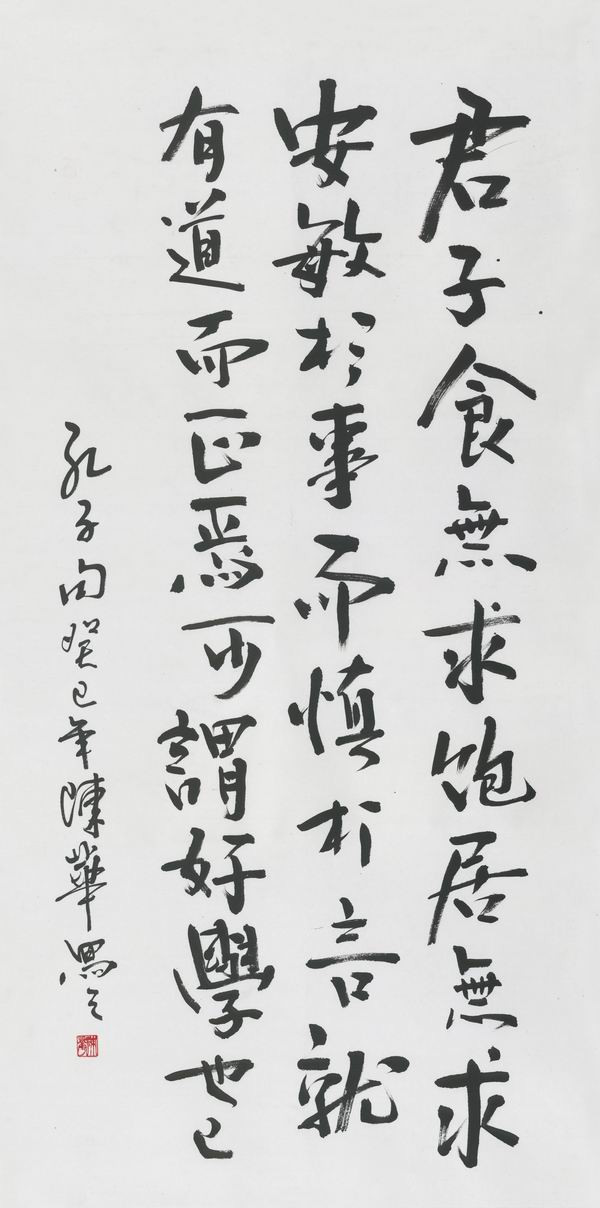 君子食無求飽居無求
安敏於事而慎於言就
有道而正焉可謂好學也已
孔子句癸巳年陳華